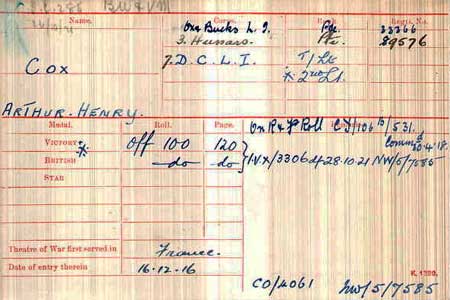 Name. Corps. Rank. Regtl. No.
Ox & Bucks L. I. Pte. 33266
3. Hussars Pte. 89576
Cox 7. D. C. L. I. T/Lt
* 2nd Lt.
ARTHUR. HENRY.
Medal. Roll. Page. On R & F Roll
VICTORY * Off 100 120 Comm 20.4.18.
BRITISH -do- do IVX/3306 28.10.21 NW/5/7585
STAR
Theatre of War first served in France.
Date of entry therein 16.12.16
K. 1380.
CO/4061 NW/5/7585